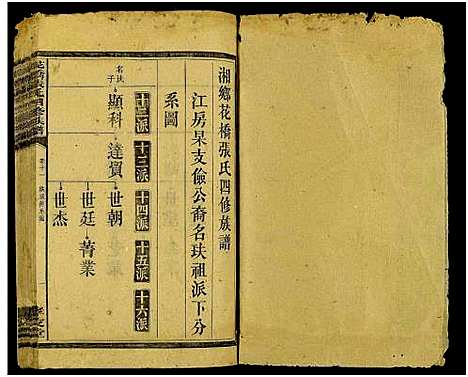 湘鄉花橋張氏四修族譜
江房杲支儉公裔名玞祖派下分
系圖
十二派 十三派 十四派 十五派 十六派
名玞子 顯科 達貭 世朝
世廷 菁業
世杰